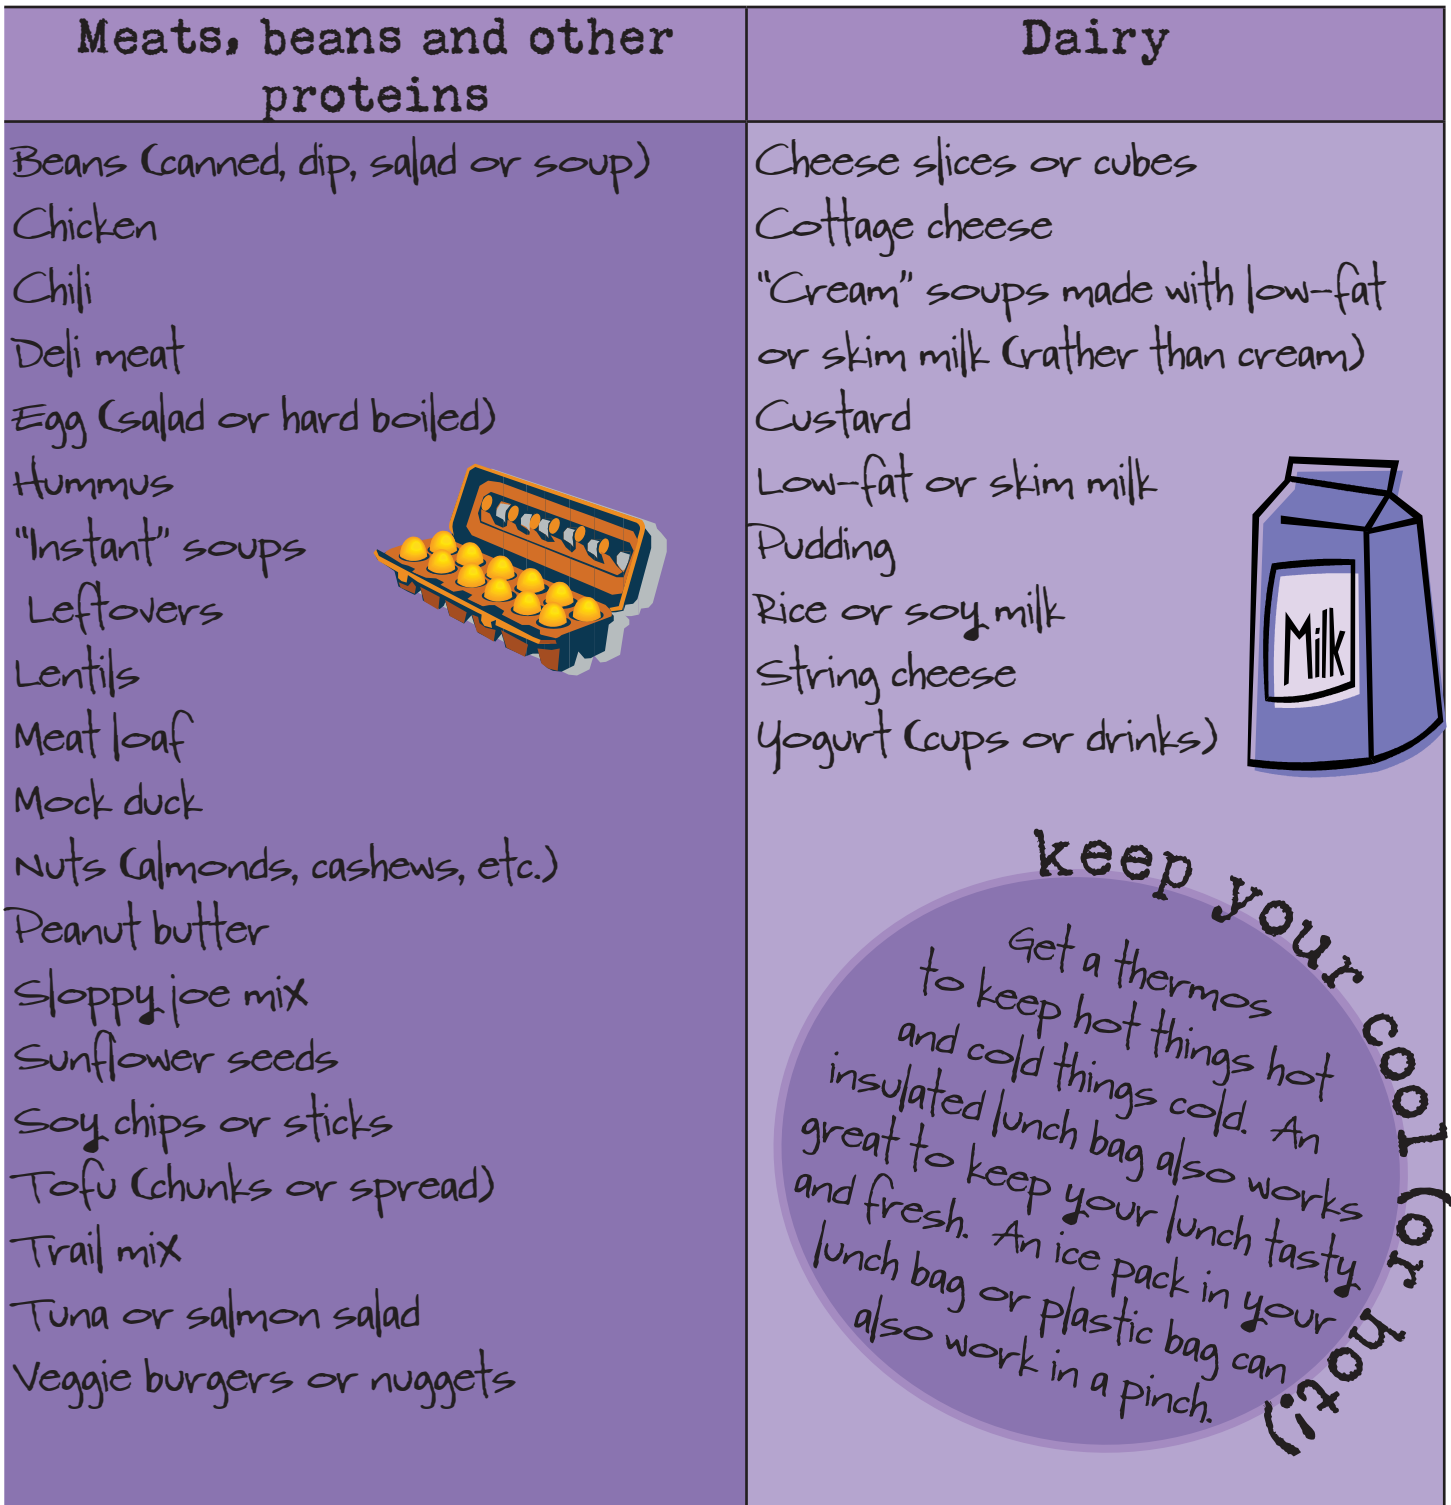 Meats, beans and other
proteins
Beans (canned, dip, salad or soup)
Chicken
Chili
Deli meat
Egg (salad or hard boiled)
Hummus
"Instant" soups
Leftovers
Lentils
Meat loaf
Mock duck
Nuts (almonds, cashews, etc.)
Peanut butter
Sloppy joe mix
Sunflower seeds
Soy chips or sticks
Tofu (chunks or spread)
Trail mix
Tuna or salmon salad
Veggie burgers or nuggets
Dairy
Cheese slices or cubes
Cottage cheese
"Cream" soups made with low-fat
or skim milk (rather than cream)
Custard
Low-fat or skim milk
Pudding
Rice or soy milk
String cheese
Yogurt (cups or drinks)
Milk
keep your cool (or hot!)
Get a thermos
to keep hot things hot
and cold things cold. An
insulated lunch bag also works
great to keep your lunch tasty
and fresh. An ice pack in your
lunch bag or plastic bag can
also work in a pinch.